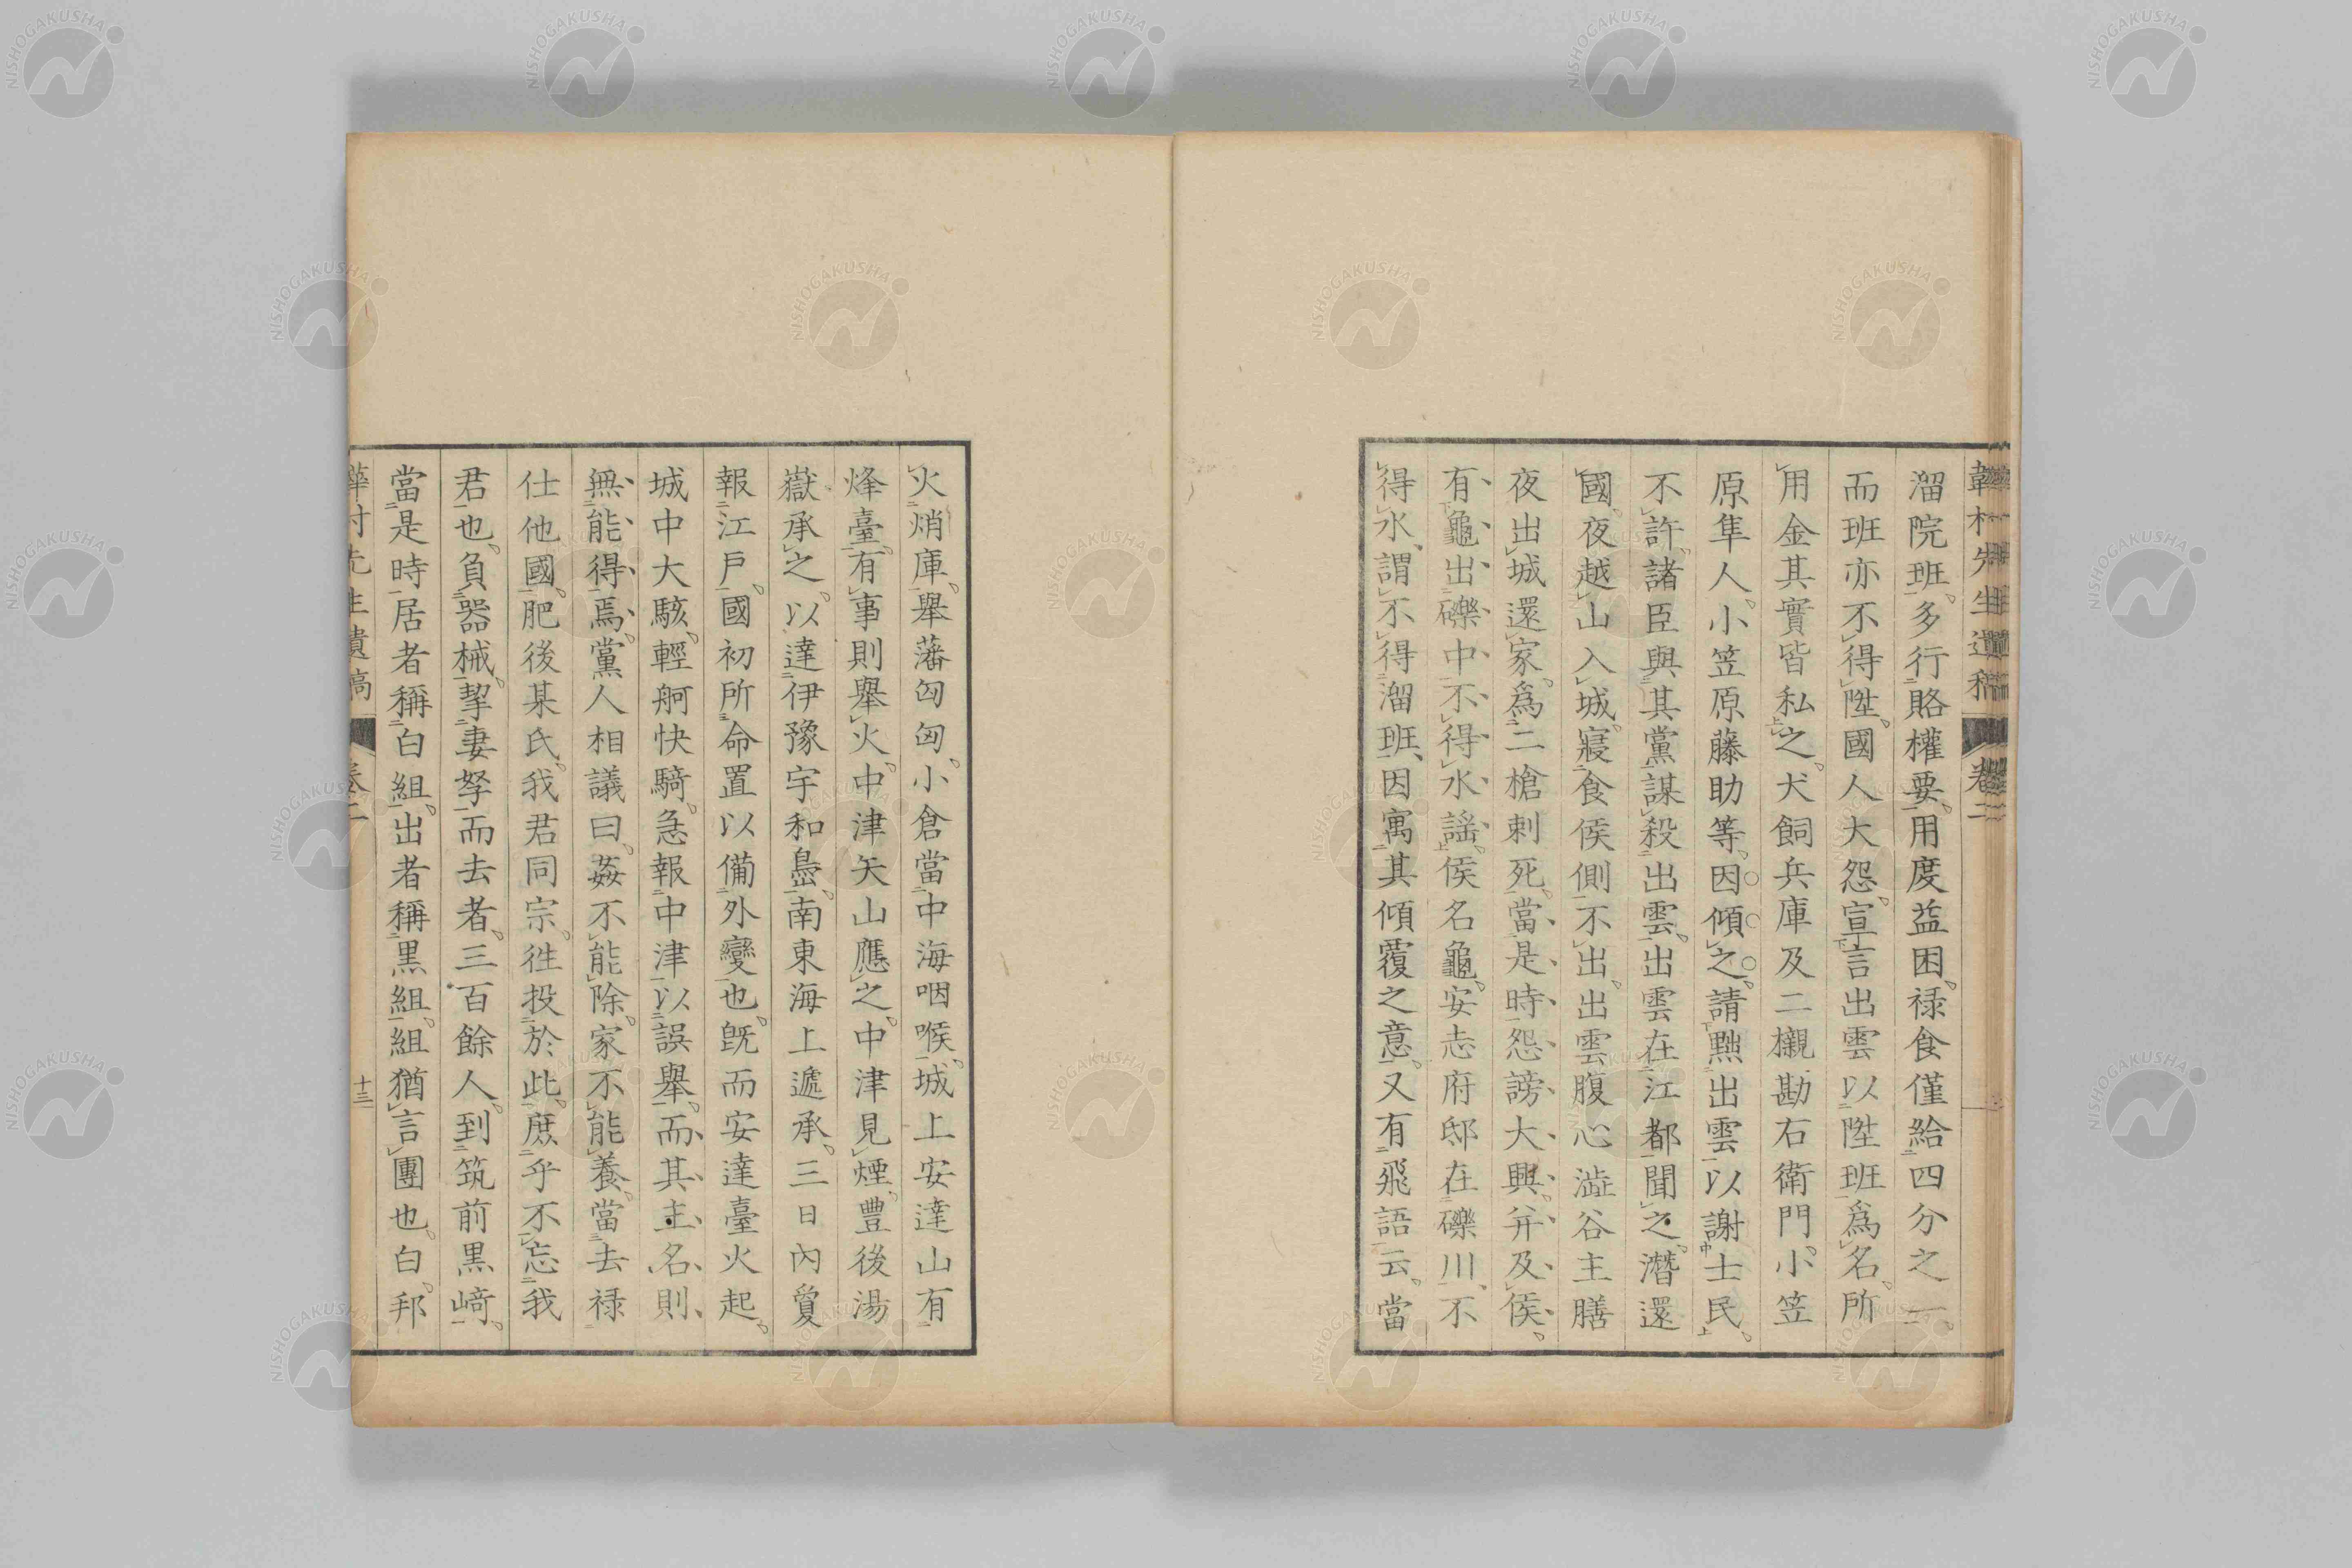 韡村先生遺稿 卷二
溜院班多行賂權要用度益困祿食僅給四分之一
而班亦不得陞國人大怨宣言出雲以陞班爲名所
用金其實皆私之犬飼兵庫及二櫬勘右衛門小笠
原隼人小笠原藤助等因傾之請黜出雲以謝士民
不許諸臣與其黨謀殺出雲出雲在江都聞之潛還
國夜越山入城寢食侯側不出出雲腹心澁谷主膳
夜出城還家爲二槍刺死當是時怨謗大興并及侯
有龜出礫中不得水謠侯名龜安志府邸在礫川不
得水謂不得溜班因寓其傾覆之意又有飛語云當
火焇庫舉藩匈匈小倉當中海咽喉城上安達山有
烽臺有事則舉火中津矢山應之中津見煙豐後湯
嶽承之以達伊豫宇和島南東海上遞承三日內奠
報江戶國初所命置以備外變也既而安達臺火起
城中大駭輕舸快騎急報中津以誤舉而其主名則
無能得焉黨人相議曰姦不能除家不能養當去祿
仕他國肥後某氏我君同宗徃投於此庶乎不忘我
君也負器械挈妻孥而去者三百餘人到筑前黑﨑
當是時居者稱白組出者稱黑組組猶言團也白邦
韡村先生遺稿 卷二 十三
NISHOGAKUSHA